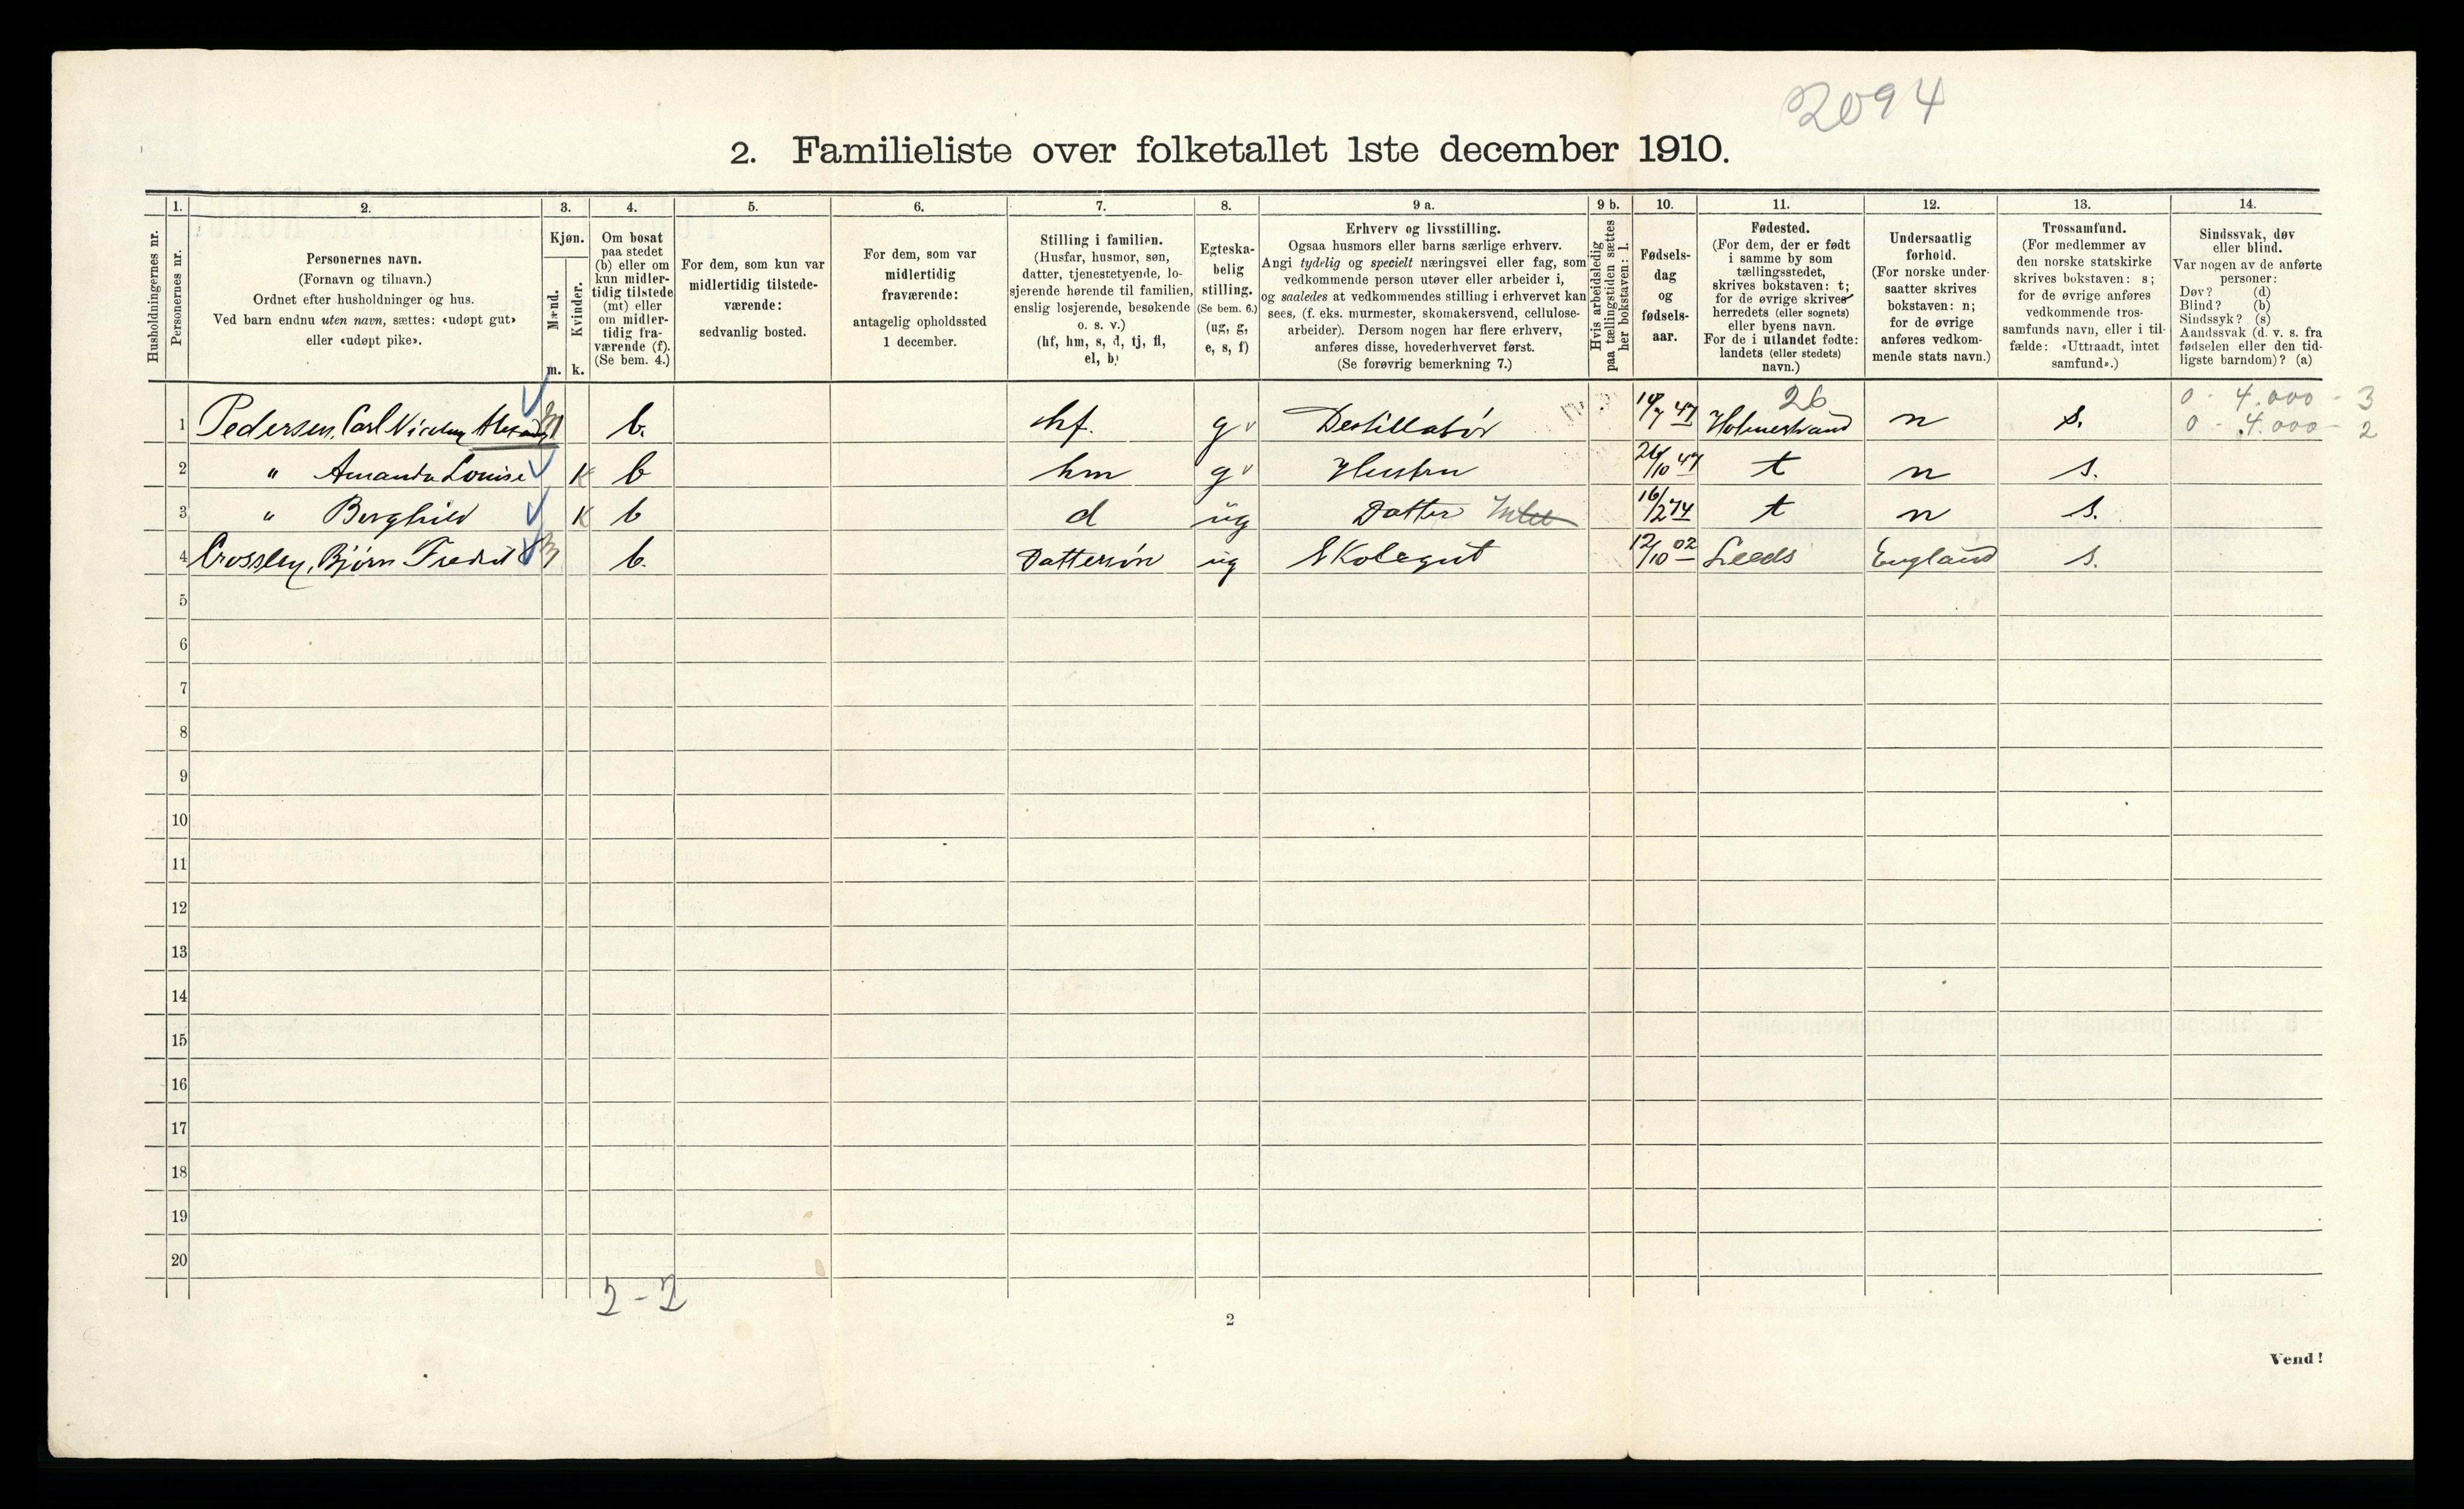 2094
2. Familieliste over folketallet 1ste december 1910.
1. 2. 3. 4. 5. 6. 7. 8. 9 a. 9 b. 10. 11. 12. 13. 14.
Husholdningernes nr.
Personernes nr.
Personernes navn.
(Fornavn og tilnavn.)
Ordnet efter husholdninger og hus.
Ved barn endnu uten navn, sættes: «udøpt gut»
eller «udøpt pike».
Kjøn.
Mænd.
Kvinder.
m. k.
Om bosat
paa stedet
(b) eller om
kun midler-
tidig tilstede
(mt) eller
om midler-
tidig fra-
værende (f).
(Se bem. 4.)
For dem, som kun var
midlertidig tilstede-
værende:
sedvanlig bosted.
For dem, som var
midlertidig
fraværende:
antagelig opholdssted
1 december.
Stilling i familien.
(Husfar, husmor, søn,
datter, tjenestetyende, lo-
sjerende hørende til familien,
enslig losjerende, besøkende
o. s. v.)
(hf, hm, s, d, tj, fl,
el, b)
Egteska-
belig
stilling.
(Se bem. 6.)
(ug, g,
e, s, f)
Erhverv og livsstilling.
Ogsaa husmors eller barns særlige erhverv.
Angi tydelig og specielt næringsvei eller fag, som
vedkommende person utøver eller arbeider i,
og saaledes at vedkommendes stilling i erhvervet kan
sees, (f. eks. murmester, skomakersvend, cellulose-
arbeider). Dersom nogen har flere erhverv,
anføres disse, hovederhvervet først.
(Se forøvrig bemerkning 7.)
Hvis arbeidsledig
paa tællingstiden sættes
her bokstaven: l.
Fødsels-
dag
og
fødsels-
aar.
Fødested.
(For dem, der er født
i samme by som
tællingsstedet,
skrives bokstaven: t;
for de øvrige skrives
herredets (eller sognets)
eller byens navn.
For de i utlandet fødte:
landets (eller stedets)
navn.)
Undersaatlig
forhold.
(For norske under-
saatter skrives
bokstaven: n;
for de øvrige
anføres vedkom-
mende stats navn.)
Trossamfund.
(For medlemmer av
den norske statskirke
skrives bokstaven: s;
for de øvrige anføres
vedkommende tros-
samfunds navn, eller i til-
fælde: «Uttraadt, intet
samfund».)
Sindssvak, døv
eller blind.
Var nogen av de anførte
personer:
Døv? (d)
Blind? (b)
Sindssyk? (s)
Aandssvak (d. v. s. fra
fødselen eller den tid-
ligste barndom)? (a)
26 0 - 4.000 - 3
1 Pedersen, Carl m b. hf. g Destillatør 47 Holmestrand n s. 0 - 4.000 - 2
2 " Amanda Louise k b hm g Hustru 26/10 47 t n s.
3 " Borghild k b d ug Datter Intet 16/2 74 t n s.
4 Crossley, Bjørn m b. Dattersøn ug Skolegut 12/10 02 Leeds England s.
5
6
7
8
9
10
11
12
13
14
15
16
17
18
19
20
2 - 2
2
Vend!